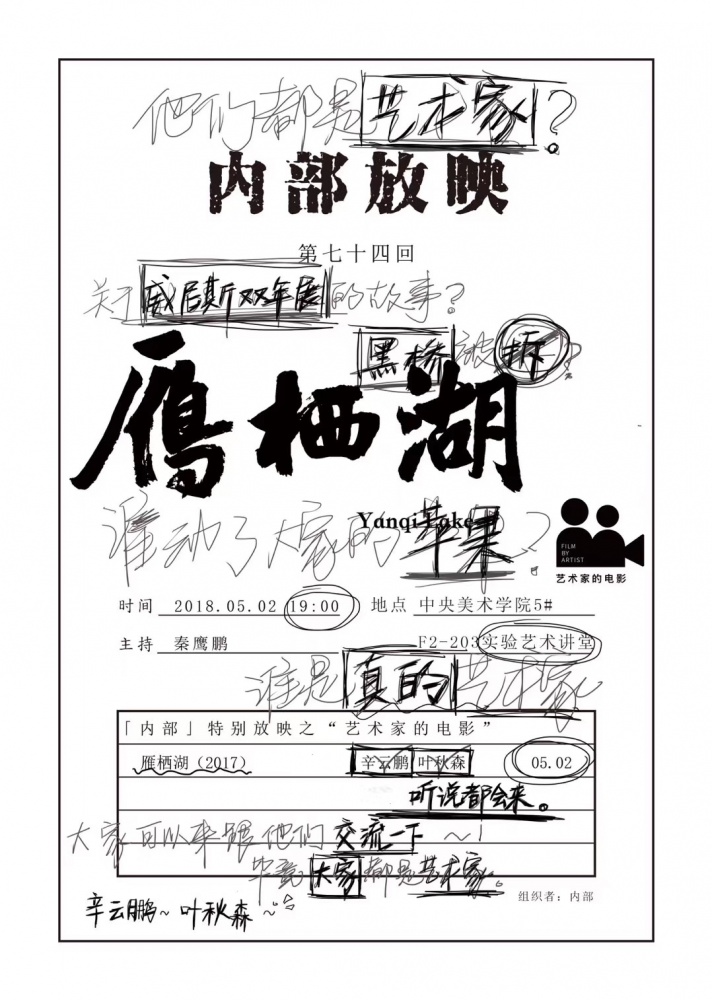 他们都是艺术家?
内部放映
第七十四回
关于威尼斯双年展的故事?
黑桥被拆?
雁栖湖
Yanqi Lake
谁动了大家的苹果?
FILM
BY
ARTIST
艺术家的电影
时间 2018.05.02 19:00 地点 中央美术学院5#
主持 秦鹰鹏 F2-203实验艺术讲堂
谁是真的艺术家
「内部」特别放映之“艺术家的电影”
雁栖湖(2017) 辛云鹏 叶秋森 05.02
听说都会来。
大家可以来跟他们交流一下~!
毕竟大家都是艺术家。
组织者:内部
辛云鹏~叶秋森~